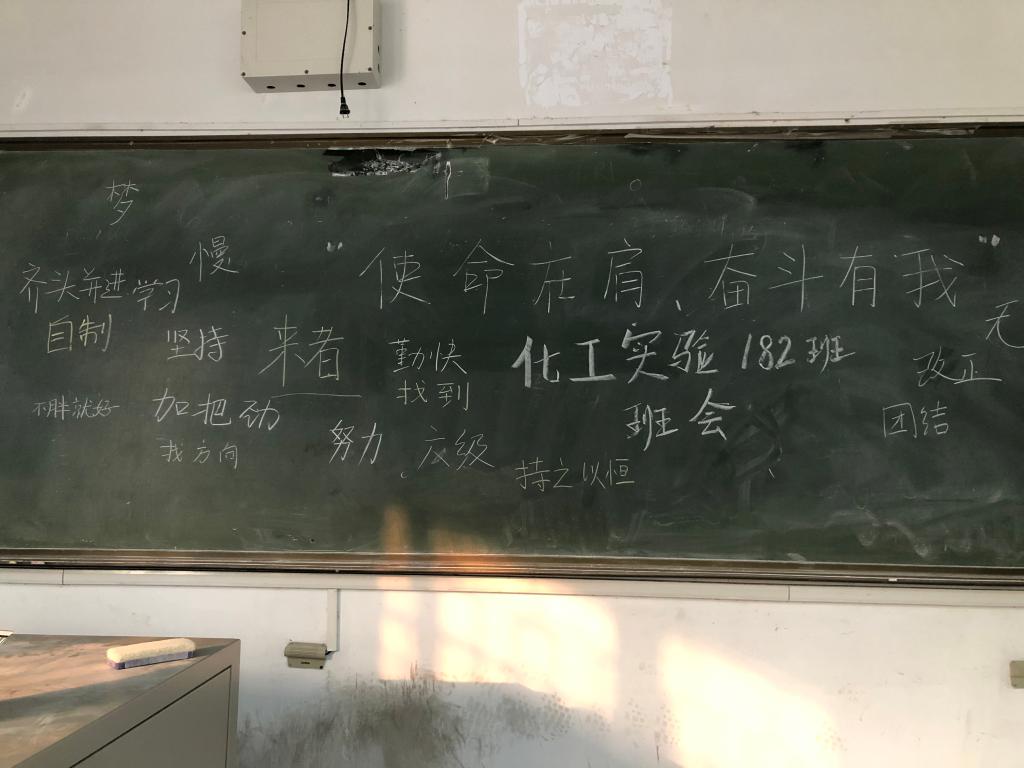 梦
慢
"使命在肩、奋斗有我"
齐头并进
学习
自制
坚持
来者
勤快
找到
化工实验182班
班会
无
改正
团结
不胖就好
加把劲
找方向
努力
六级
持之以恒